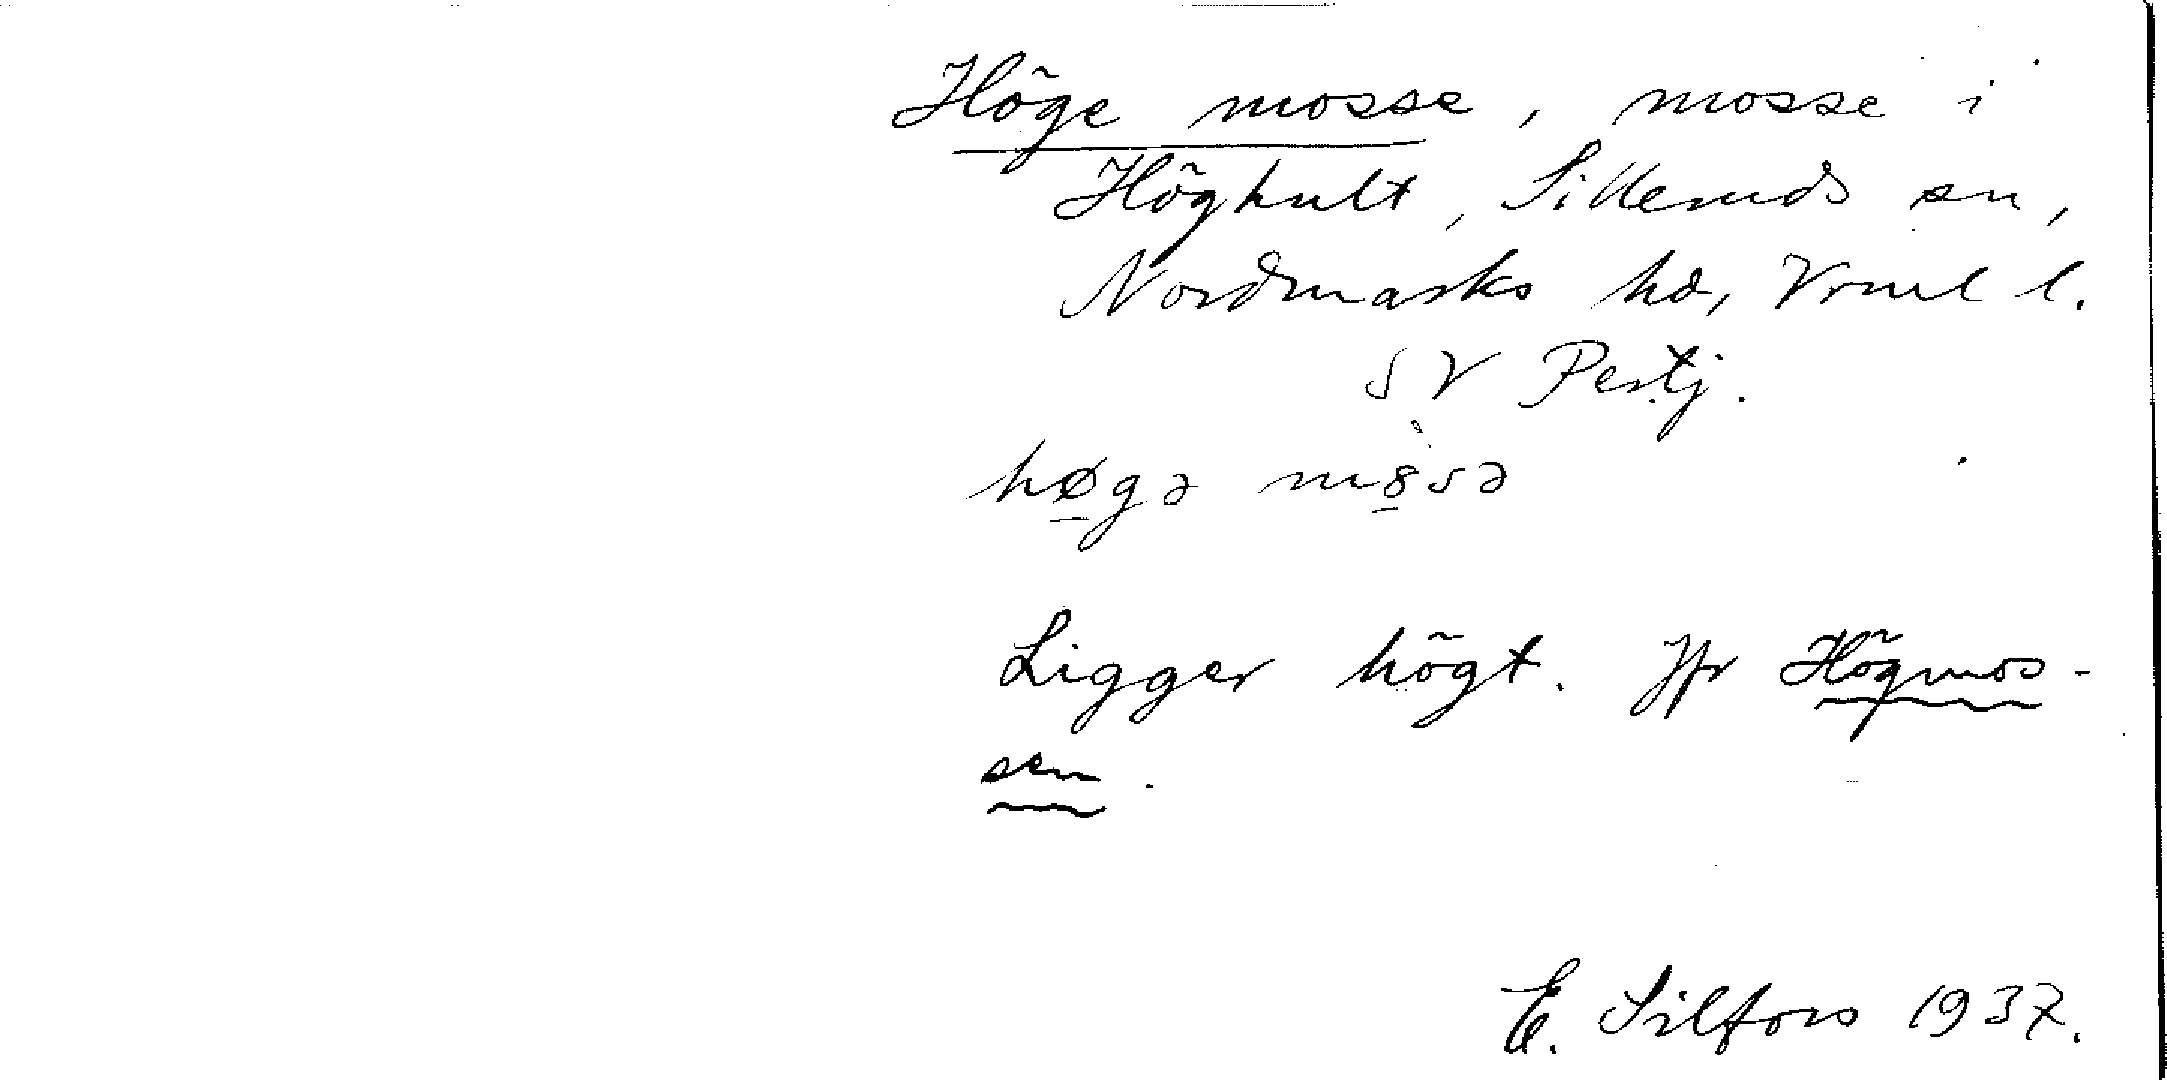 Höge mosse, mosse i
Höghult, Silleruds sn,
Nordmarks hd, Vrml l.
SV Pertj.
høgə m8sə
Ligger högt. Jfr Högmos-
sen.
E. Silfors 1937.